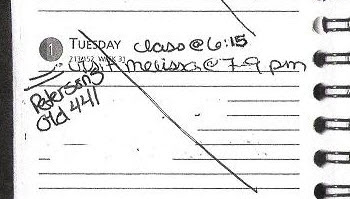 1 TUESDAY class @ 6:15
213/152 WEEK 31
visit melissa @ 7-9 pm
Petersons
Old 441